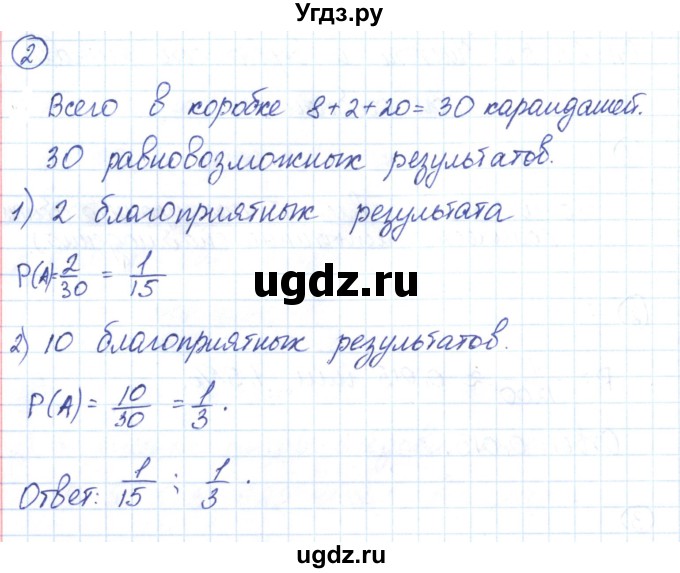 Угдз.ру
2
Всего в коробке 8+2+20=30 карандашей.
30 равновозможных результатов.
1) 2 благоприятных результата
P(A)=2/30 = 1/15
ugdz.ru
2) 10 благоприятных результатов.
P(A) = 10/30 = 1/3.
Ответ: 1/15 ; 1/3.
ugdz.ru